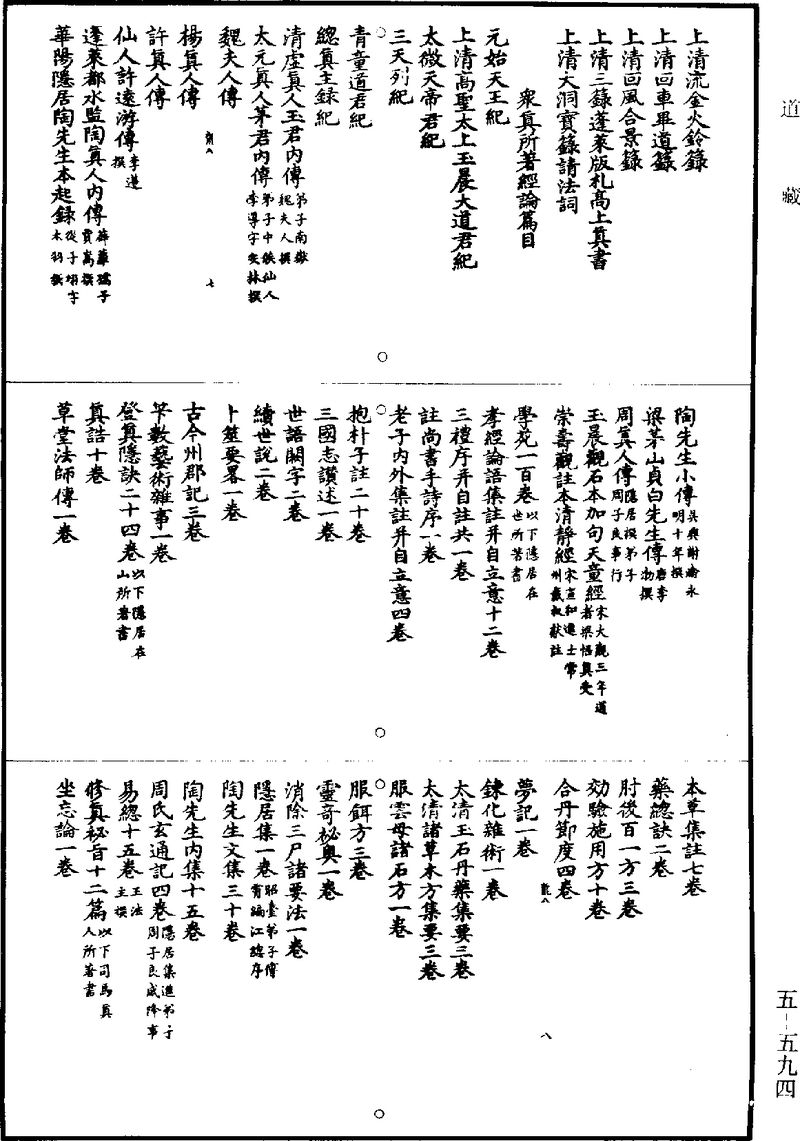 道藏
上清流金火鈴籙
上清回車畢道籙
上清回風合景籙
上清三籙蓬萊版札高上真書
上清大洞寶籙請法詞
衆真所著經論篇目
元始天王紀
上清高聖太上玉晨大道君紀
太微天帝君紀
三天列紀
青童道君紀
總真主録紀
清虛真人王君内傳弟子南嶽魏夫人撰
太元真人茅君内傳弟子中候仙人李遵字安林撰
魏夫人傳
七
楊真人傳
許真人傳
仙人許遠游傳李遵撰
蓬萊都水監陶真人内傳薜蘿孺子賈嵩撰
華陽隱居陶先生本起録從子翊字木羽撰
陶先生小傳吳興謝瀹永明十年撰
梁茅山貞白先生傳唐李渤撰
周真人傳隱居撰弟子周子良事行
玉晨觀石本加句天童經宋大觀三年道者梁悟真受
崇壽觀註本清靜經宋宣和進士常州戴叔獻註
學苑一百卷以下隱居在世所著書
孝經論語集註并自立意十二卷
三禮序并自註共一卷
註尚書手詩序一卷
老子内外集註并自立意四卷
抱朴子註二十卷
三國志讚述一卷
世語闕字二卷
續世說二卷
卜筮要畧一卷
古今州郡記三卷
筭數藝術雜事一卷
登真隱訣二十四卷以下隱居在山所著書
真誥十卷
草堂法師傳一卷
本草集註七卷
藥總訣二卷
肘後百一方三卷
効驗施用方十卷
合丹節度四卷
八
夢記一卷
鍊化雜術一卷
太清玉石丹藥集要三卷
太清諸草木方集要三卷
服雲母諸石方一卷
服餌方三卷
靈奇祕奧一卷
消除三尸諸要法一卷
隱居集一卷昭臺弟子傅霄編江總序
陶先生文集三十卷
陶先生内集十五卷
周氏玄通記四卷隱居集進弟子周子良感降事
易總十五卷王法主撰
修真祕旨十二篇以下司馬真人所著書
坐忘論一卷
五-五九四